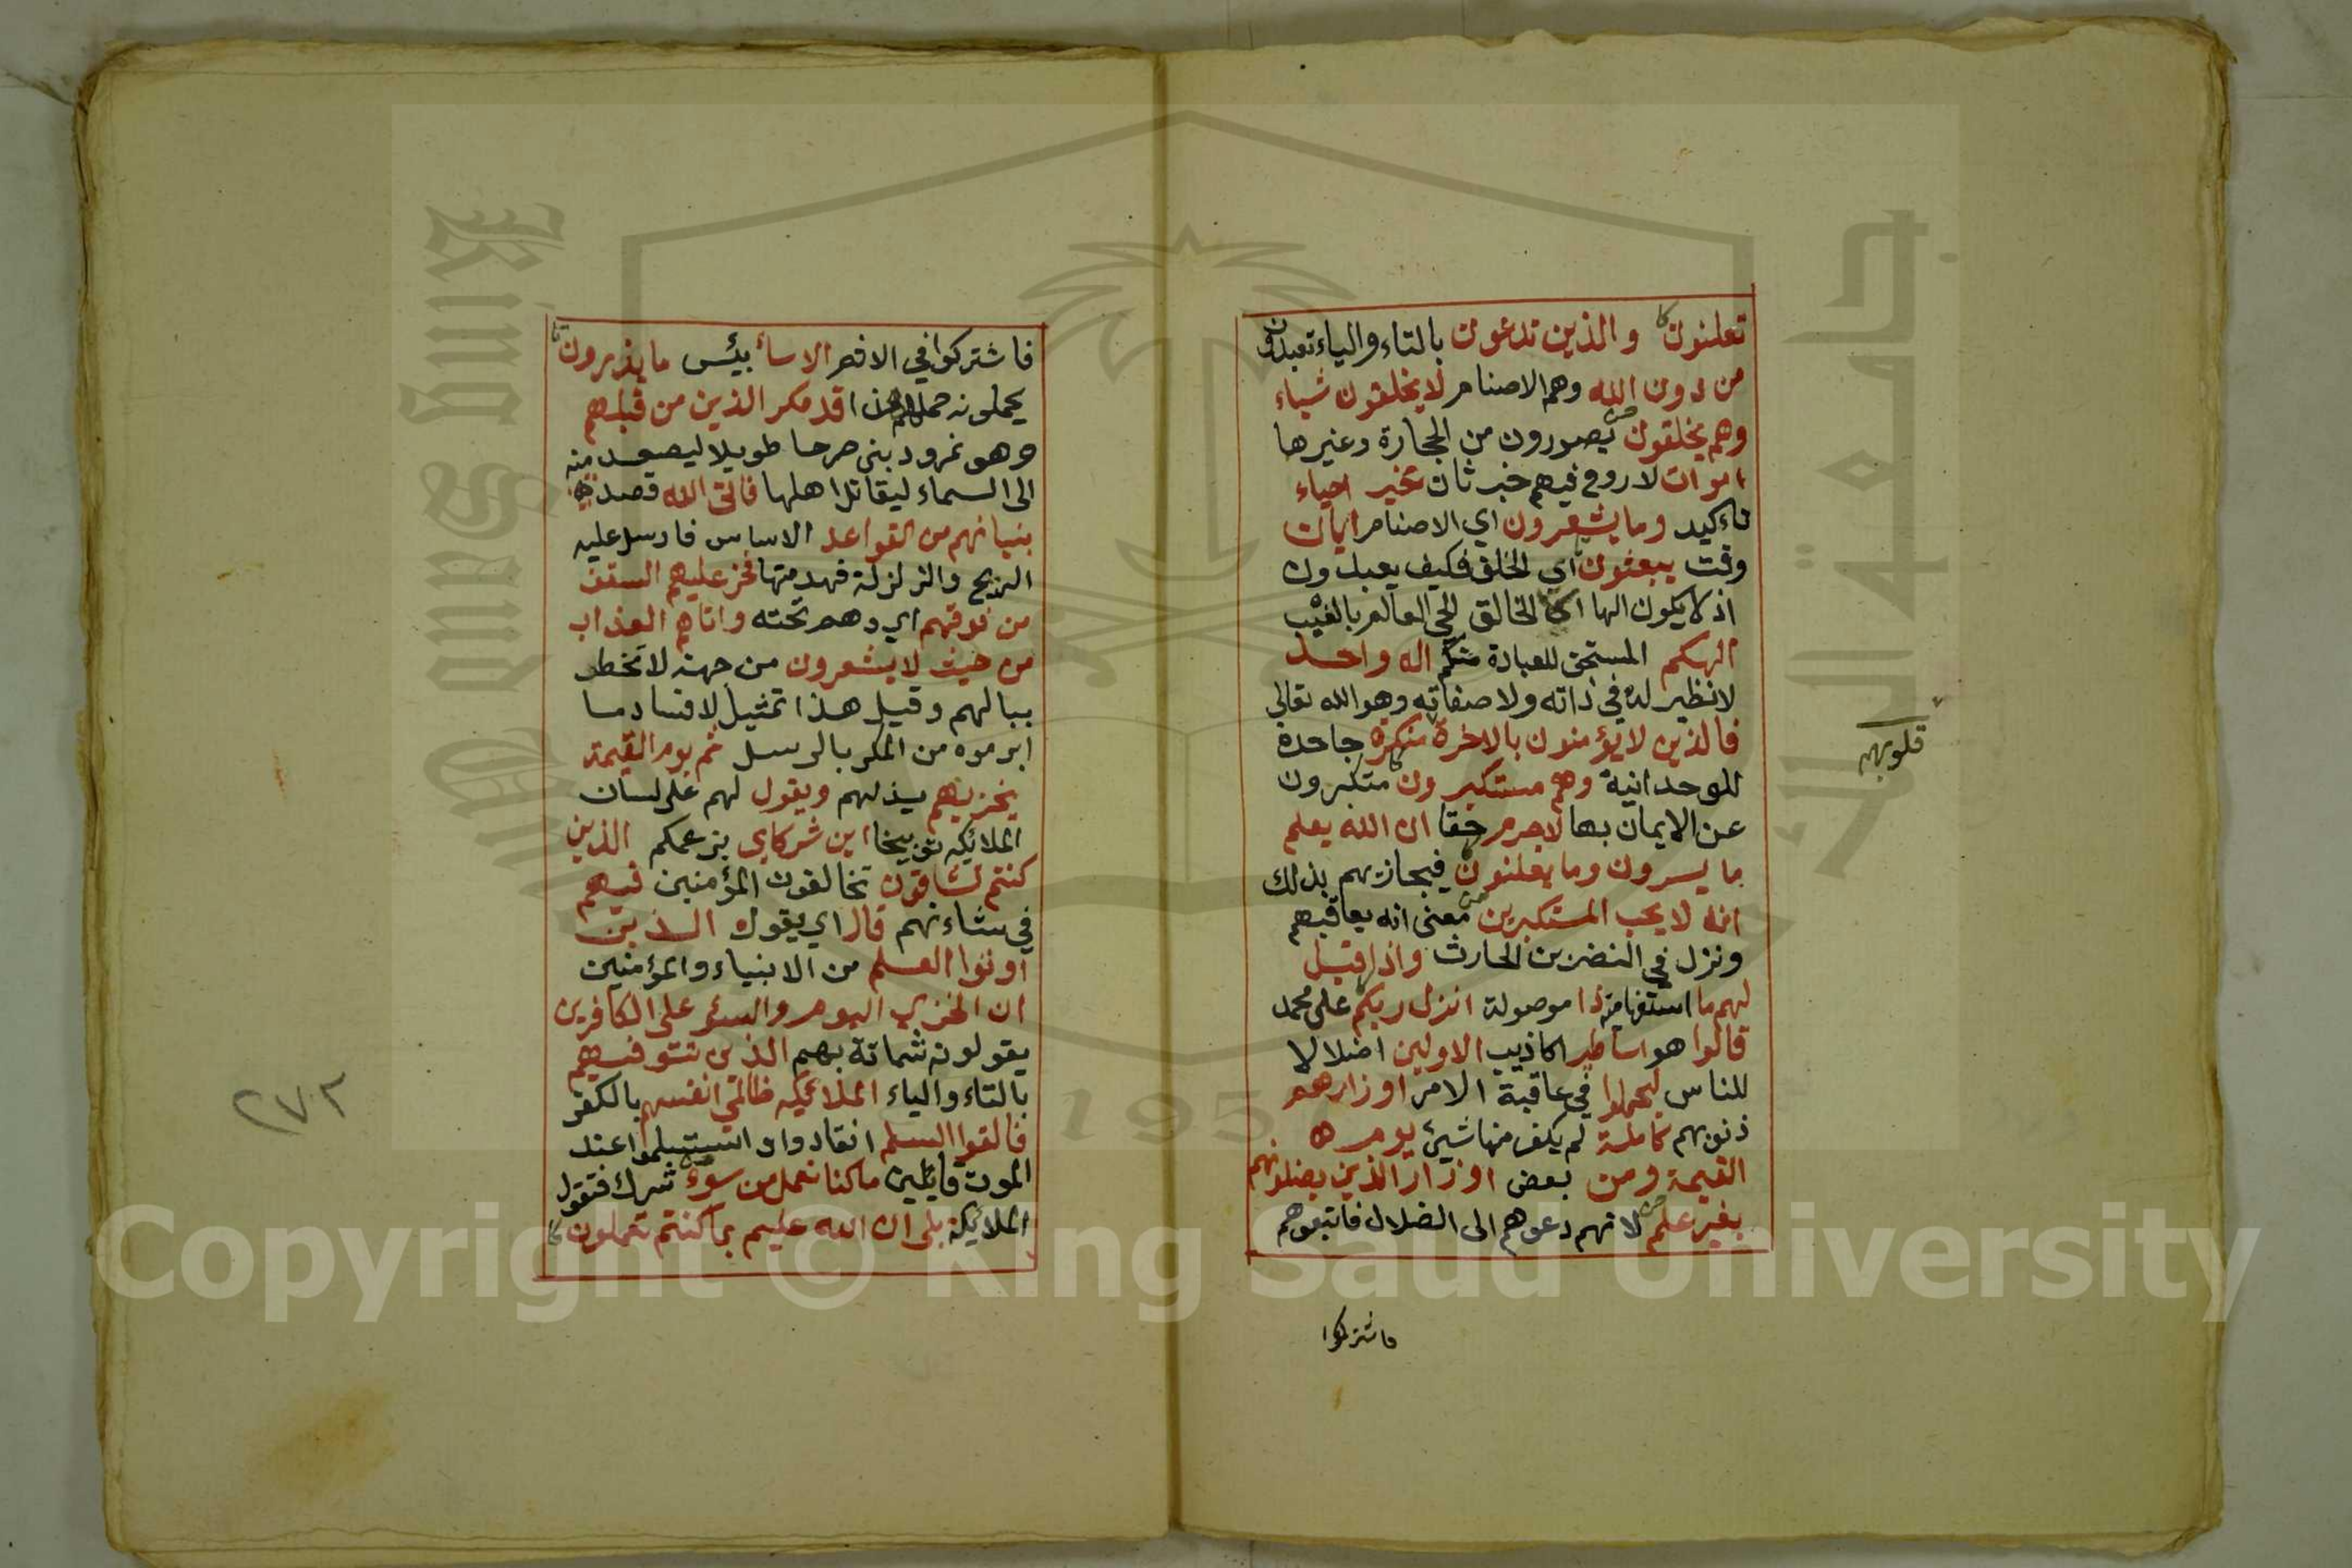 تعلنون والذين تدعون بالتاء والياء تعبدون
من دون الله وهم الاصنام لا يخلقون شياء
وهم يخلقون يصورون من الحجارة وغيرها
اموات لا روح فيهم خبر ثان غير احياء
تاءكيد وما يشعرون اي الاصنام ايان
وقت يبعثون اي الخلق فكيف يعبدون
اذ لا يكون الها الا الخالق الحي العالم بالغيب
الهكم المستحق للعبادة منكم اله واحد
لا نظير له في ذاته ولا صفاته وهو الله تعالى
فالذين لا يؤمنون بالاخرة منكرة جاحدة
قلوبهم
للوحدانية وهم مستكبرون متكبرون
عن الايمان بها لا جرم حقا ان الله يعلم
ما يسرون وما يعلنون فيجازيهم بذلك
انه لا يحب المستكبرين بمعنى انه يعاقبهم
ونزل في النضر بن الحارث واذا قيل
لهم ما استفهامية ذا موصولة انزل ربكم على محمد
قالوا هو اساطير اكاذيب الاولين اضلالا
للناس ليحملوا في عاقبة الامر اوزارهم
ذنوبهم كاملة لم يكفر منها شيئ يوم
القيمة ومن بعض اوزار الذين يضلونهم
بغير علم لانهم دعوهم الى الضلال فاتبعوهم
فاشتركوا
فاشتركوا في الاثم الا ساء بيئس ما يزرون
يحملونه حملهم هذا قد مكر الذين من قبلهم
وهو نمرود بنى صرحا طويلا ليصعد منه
الى السماء ليقاتل اهلها فاتى الله قصد
بنيانهم من القواعد الاساس فارسل عليه
الريح والزلزلة فهدمتها فخر عليهم السقف
من فوقهم اي وهم تحته واتاهم العذاب
من حيث لا يشعرون من جهة لا تخطر
ببالهم وقيل هذا تمثيل لافساد ما
ابرموه من المكر بالرسل ثم يوم القيمة
يخزيهم يذلهم ويقول لهم على لسان
الملائكة توبيخا اين شركاي بزعمكم الذين
كنتم تشاقون تخالفون المؤمنين فيهم
في شاءنهم قال اي يقول الذين
اوتوا العلم من الانبياء والمؤمنين
ان الخزي اليوم والسوء على الكافرين
يقولونه شماتة بهم الذين تتوفيهم
بالتاء والياء الملائكة ظالمي انفسهم بالكفر
فالقوا السلم انقادوا واستسلموا عند
الموت قائلين ما كنا نعمل من سوء شرك فتقول
الملائكة بلى ان الله عليم بما كنتم تعملون
٢٧٢
جامعة الملك سعود
King Saud University
1957
Copyright © King Saud University